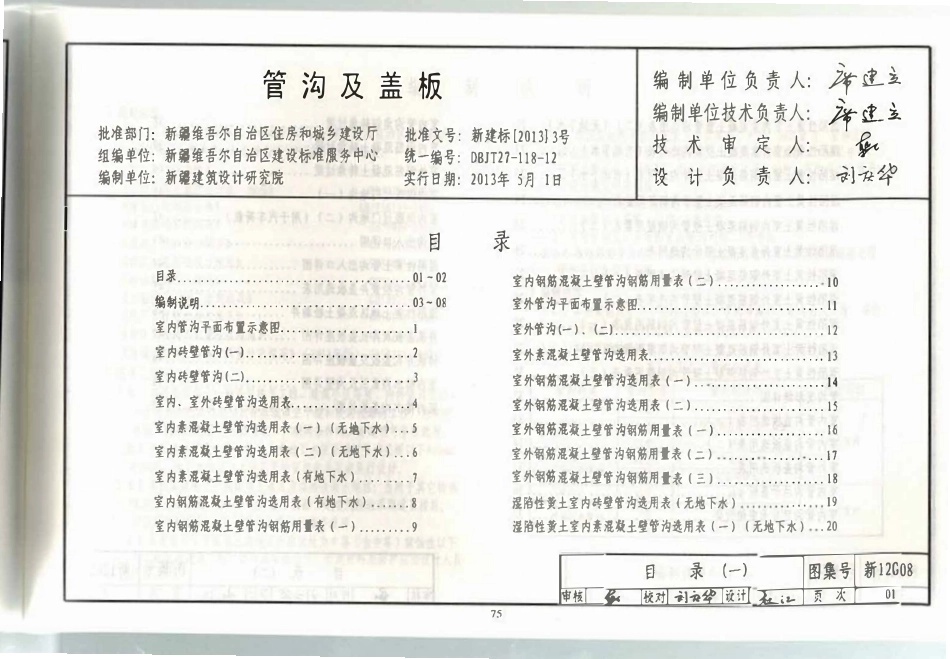 管沟及盖板
批准部门：新疆维吾尔自治区住房和城乡建设厅 批准文号：新建标[2013]3号
组编单位：新疆维吾尔自治区建设标准服务中心 统一编号：DBJT27-118-12
编制单位：新疆建筑设计研究院 实行日期：2013年5月1日
编制单位负责人：席建立
编制单位技术负责人：席建立
技术审定人：
设计负责人：
目 录
目录...01~02
编制说明...03~08
室内管沟平面布置示意图...1
室内砖壁管沟(一)...2
室内砖壁管沟(二)...3
室内、室外砖壁管沟选用表...4
室内素混凝土壁管沟选用表(一)(无地下水)...5
室内素混凝土壁管沟选用表(二)(无地下水)...6
室内素混凝土壁管沟选用表(有地下水)...7
室内钢筋混凝土壁管沟选用表(有地下水)...8
室内钢筋混凝土壁管沟钢筋用量表(一)...9
室内钢筋混凝土壁管沟钢筋用量表(二)...10
室外管沟平面布置示意图...11
室外管沟(一)、(二)...12
室外素混凝土壁管沟选用表...13
室外钢筋混凝土壁管沟选用表(一)...14
室外钢筋混凝土壁管沟选用表(二)...15
室外钢筋混凝土壁管沟钢筋用量表(一)...16
室外钢筋混凝土壁管沟钢筋用量表(二)...17
室外钢筋混凝土壁管沟钢筋用量表(三)...18
湿陷性黄土室内砖壁管沟选用表(无地下水)...19
湿陷性黄土室内素混凝土壁管沟选用表(一)(无地下水)...20
目 录 (一) 图集号 新12G08
审核 校对 设计 页次 01
75